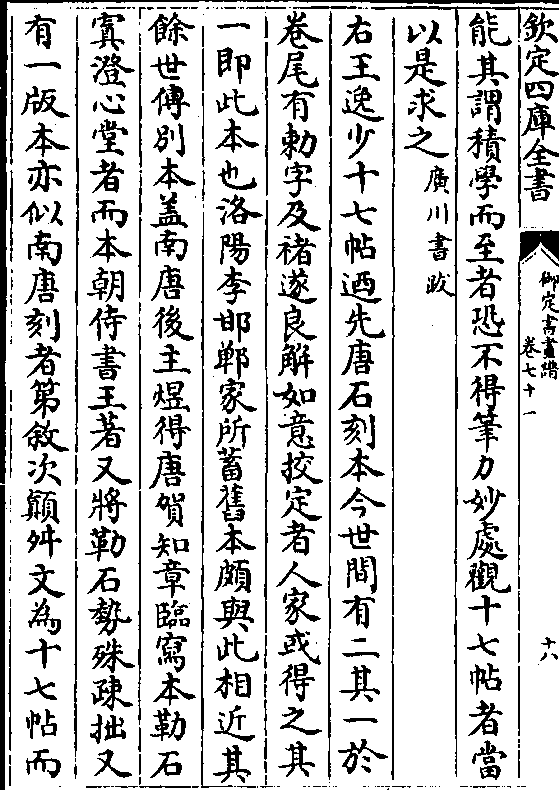 欽定四庫全書
御定書畫譜
卷七十一
十六
能其謂積學而至者恐不得筆力妙處觀十七帖者當
以是求之廣川書跋
右王逸少十七帖迺先唐石刻本今世間有二其一於
卷尾有勅字及褚遂良解如意挍定者人家或得之其
一即此本也洛陽李邯鄲家所蓄舊本頗與此相近其
餘世傳別本蓋南唐後主煜得唐賀知章臨寫本勒石
寘澄心堂者而本朝侍書王著又將勒石勢殊疎拙又
有一版本亦似南唐刻者第敘次顛舛文為十七帖而